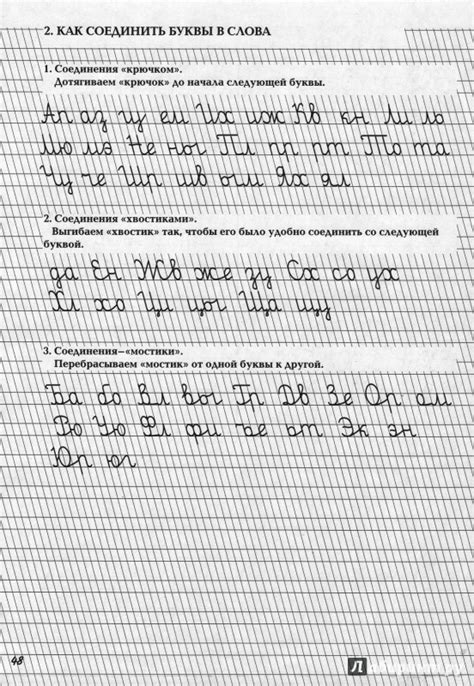 2. КАК СОЕДИНИТЬ БУКВЫ В СЛОВА
1. Соединения «крючком».
Дотягиваем «крючок» до начала следующей буквы.
Ап аз гу ем Их иж Кв кн Ли ло
Мю мэ Не ны Пл пр рт То та
Чу че Шр шв ым Ях ял
2. Соединения «хвостиками».
Выгибаем «хвостик» так, чтобы его было удобно соединить со следующей
буквой.
да Ен Жв же зу Сх со ух
Хл хо Ци цы Ща щу
3. Соединения–«мостики».
Перебрасываем «мостик» от одной буквы к другой.
Ба бо Вл вы Гр Дв Зе Ор ом
Рю Ую Фл фи ье ът Эк эн
Юр юг
48